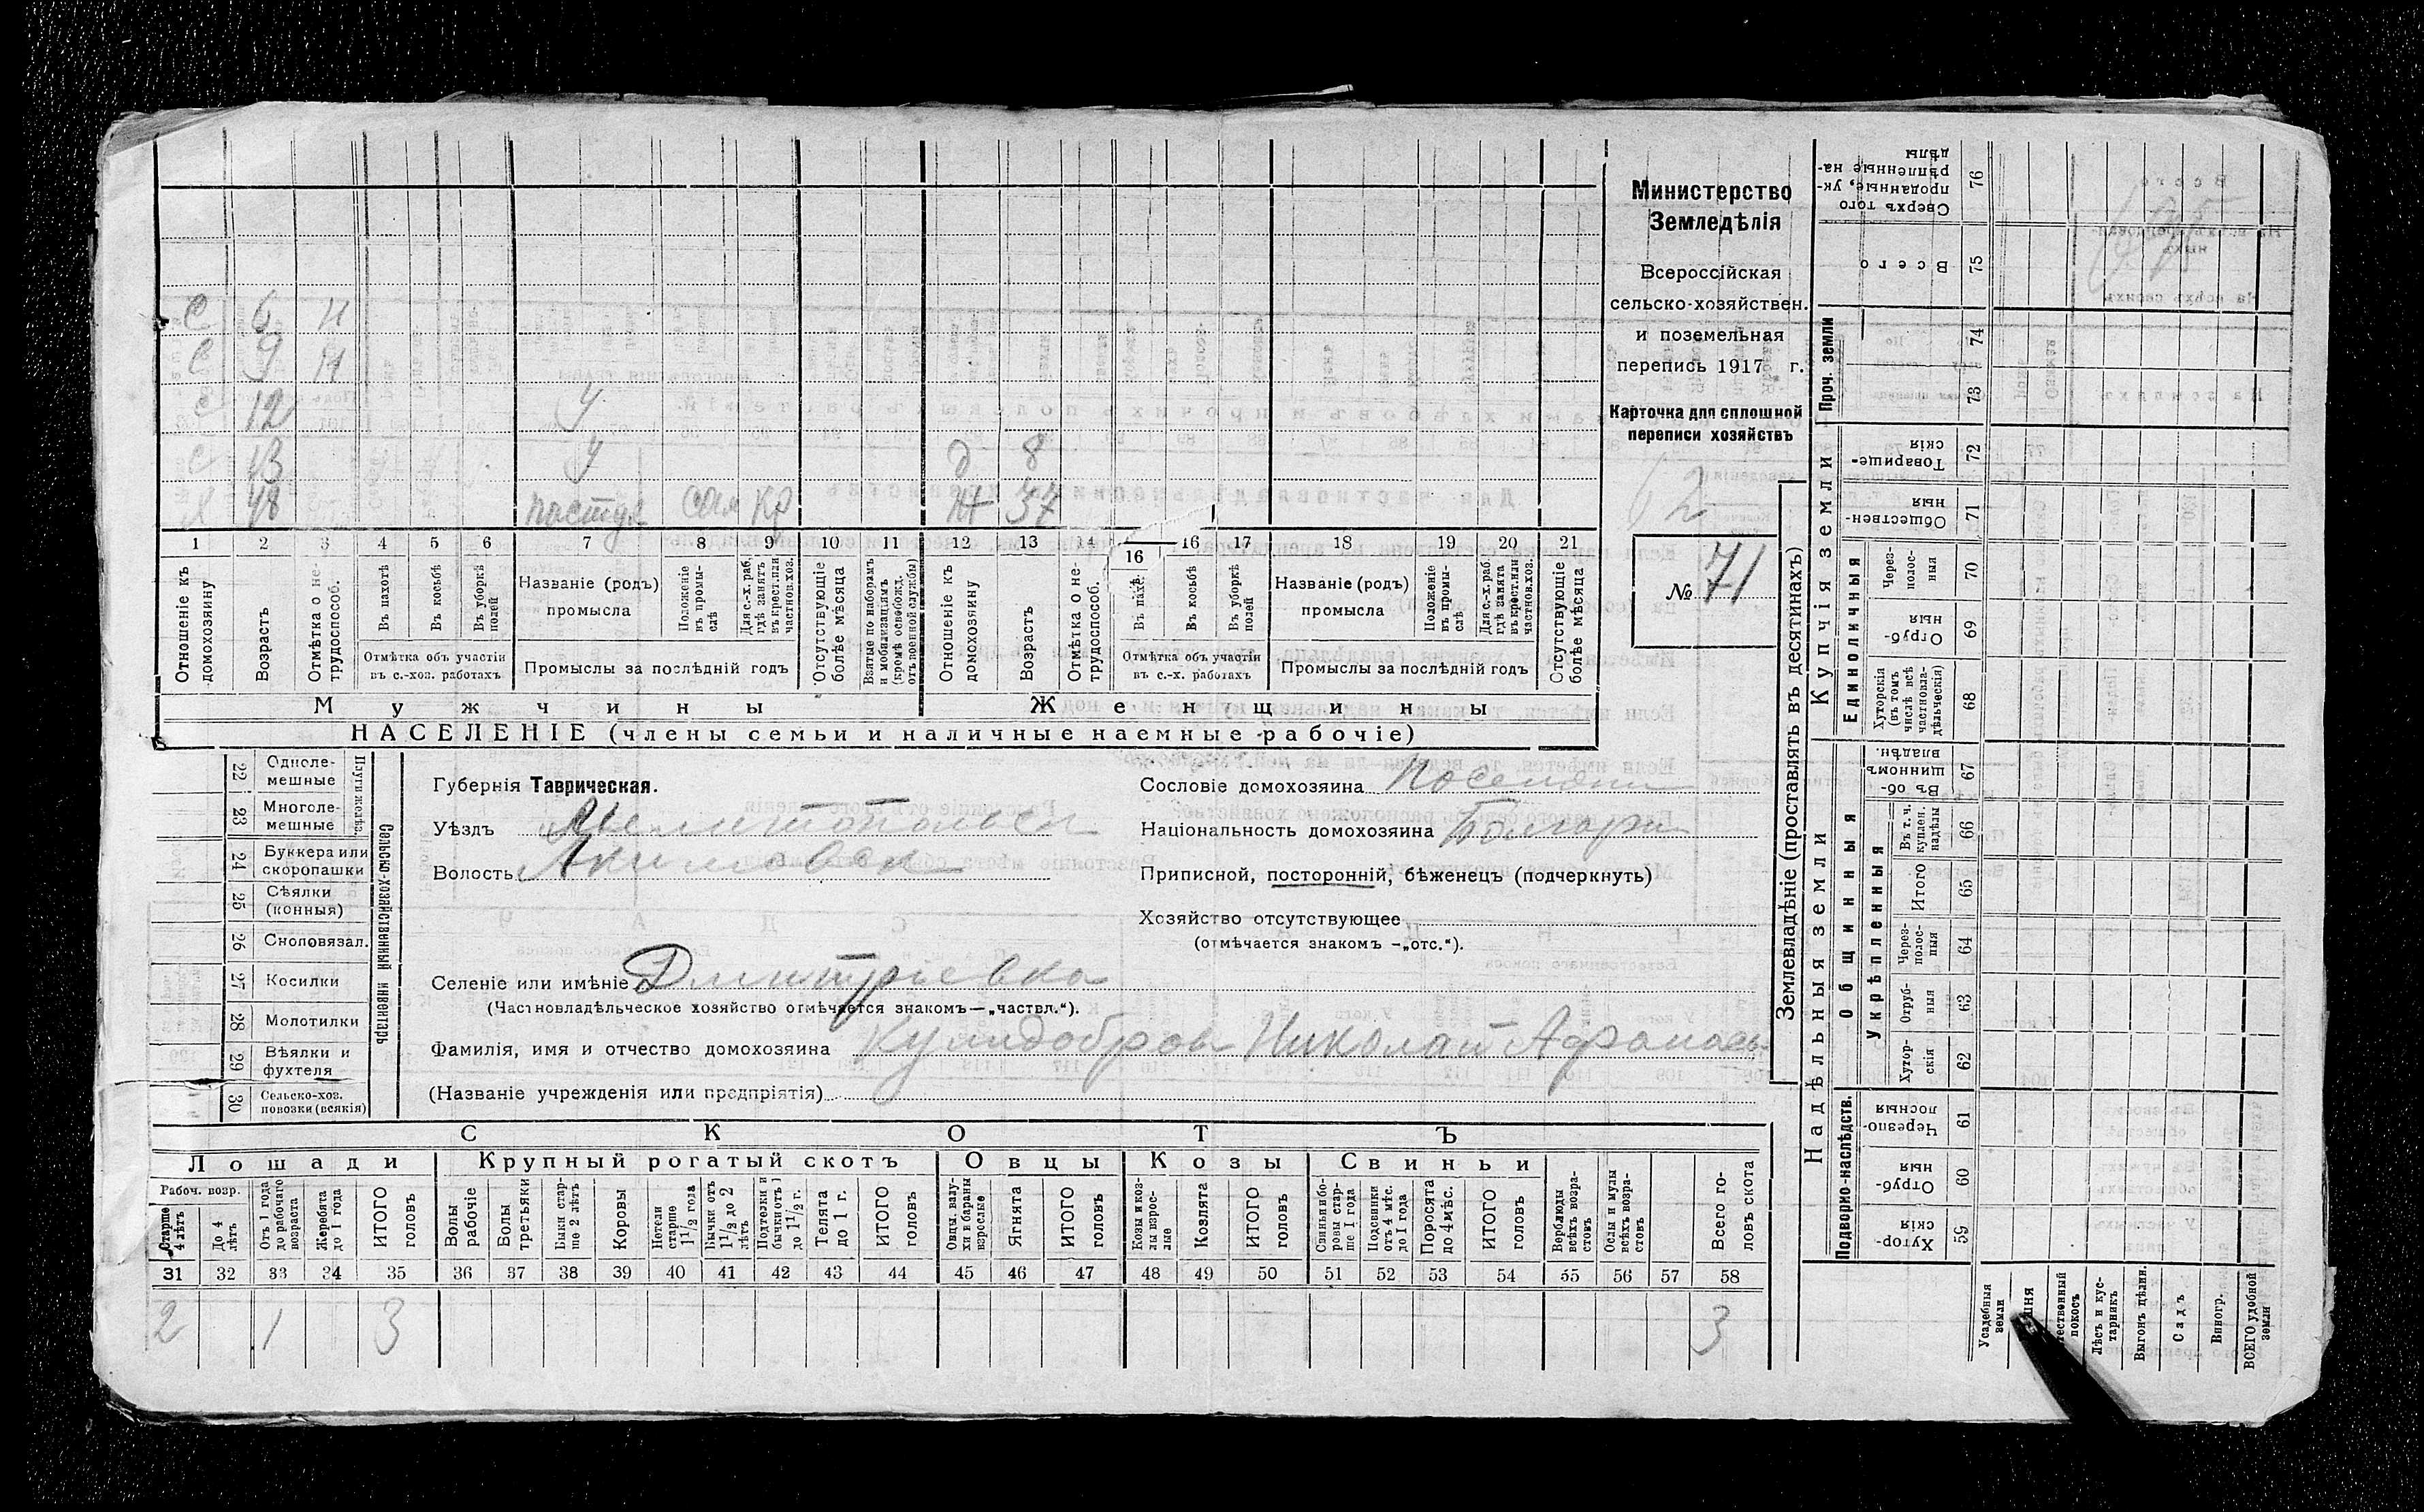 Министерство
Земледѣлія
Всероссійская
сельско-хозяйствен.
и поземельная
перепись 1917 г.
Карточка для сплошной
переписи хозяйствъ
2
№ 71
с 6 н
с 9 н
с 12 У
с 13 У д 8
х 48 пастух сам кр ж 37
1 2 3 4 5 6 7 8 9 10 11 12 13 14 16 16 17 18 19 20 21
Отношеніе къ домохозяину
Возрастъ
Отмѣтка о нетрудоспособ.
Въ пахотѣ
Въ косьбѣ
Въ уборкѣ полей
Отмѣтка объ участіи въ с.-хоз. работахъ
Названіе (родъ) промысла
Положеніе въ промыслѣ
Для с.-х. раб. гдѣ занятъ въ крест. или частнов. хоз.
Промыслы за послѣдній годъ
Отсутствующіе болѣе мѣсяца
Взятые по наборамъ и мобилизаціямъ (кромѣ освобожд. отъ военной службы)
Отношеніе къ домохозяину
Возрастъ
Отмѣтка о нетрудоспособ.
Въ пахѣ.
Въ косьбѣ
Въ уборкѣ полей
Отмѣтка объ участіи въ с.-х. работахъ
Названіе (родъ) промысла
Положеніе въ промыслѣ
Для с.-х. раб. гдѣ занята въ крест. или частнов. хоз.
Промыслы за послѣдній годъ
Отсутствующіе болѣе мѣсяца
Мужчины Женщины
НАСЕЛЕНІЕ (члены семьи и наличные наемные рабочіе)
22 Однолемешные
23 Многолемешные
Плуги желѣз.
24 Буккера или скоропашки
25 Сѣялки (конныя)
26 Сноповязал.
27 Косилки
28 Молотилки
29 Вѣялки и фухтеля
30 Сельско-хоз. повозки (всякія)
Сельско-хозяйственный инвентарь
Губернія Таврическая.
Уѣздъ Мелитопольск
Волость Акимовск
Селеніе или имѣніе Дмитріевка
(Частновладѣльческое хозяйство отмѣчается знакомъ—„частвл.“).
Фамилія, имя и отчество домохозяина Николай Афанась
(Названіе учрежденія или предпріятія)
Сословіе домохозяина Поселян
Національность домохозяина Болгары
Приписной, посторонній, бѣженецъ (подчеркнуть)
Хозяйство отсутствующее
(отмѣчается знакомъ —„отс.“).
СКОТЪ
Лошади Крупный рогатый скотъ Овцы Козы Свиньи
Рабоч. возр.
Старше 4 лѣтъ
До 4 лѣтъ
Отъ 1 года до рабочаго возраста
Жеребята до 1 года
ИТОГО головъ
Волы рабочіе
Волы третьяки
Быки старше 2 лѣтъ
Коровы
Нетели старше 1 1/2 года
Бычки отъ 1 1/2 до 2 лѣтъ
Подтелки и бычки отъ 1 до 1 1/2 г.
Телята до 1 г.
ИТОГО головъ
Овцы, валухи и бараны взрослые
Ягнята
ИТОГО головъ
Козы и козлы взрослые
Козлята
ИТОГО головъ
Свиньи и боровы старше 1 года
Подсвинки отъ 4 мѣс. до 1 года
Поросята до 4 мѣс.
ИТОГО головъ
Верблюды всѣхъ возрастовъ
Ослы и мулы всѣхъ возрастовъ
Всего головъ скота
31 32 33 34 35 36 37 38 39 40 41 42 43 44 45 46 47 48 49 50 51 52 53 54 55 56 57 58
2 1 3 3
Землевладѣніе (проставлять въ десятинахъ)
Купчія земли
Надѣльныя земли
Сверхъ того проданные, укрѣпленные надѣлы 76
Всего 75
Проч. земли
74
73
Товарищескія 72
Общественныя 71
Единоличныя
Черезполосныя 70
Отрубныя 69
Хуторскія (въ томъ числѣ всѣ частновладѣльческія) 68
Общинныя
Въ общинномъ владѣн. 67
Укрѣпленныя
Въ т. ч. куплен. надѣлы 66
Итого 65
Черезполосныя 64
Отрубныя 63
Хуторскія 62
Подворно-наслѣдств.
Черезполосныя 61
Отрубныя 60
Хуторскія 59
Усадебныя земли
Лѣсъ и кустарникъ
Выгонъ цѣлин.
Садъ
Виногр.
ВСЕГО удобной земли